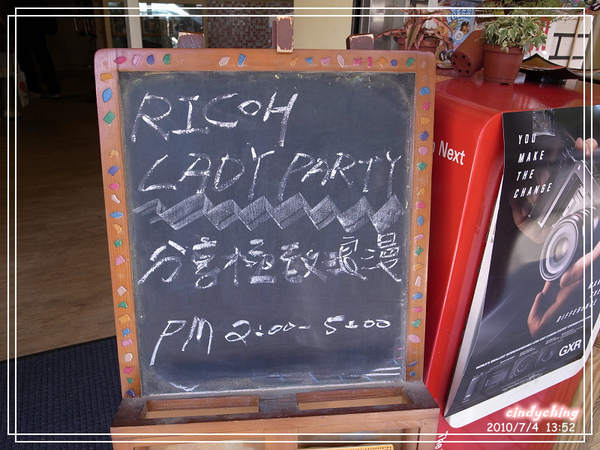 RICOH
LADY PARTY
分享極致浪漫
PM 2:00-5:00
Next
YOU
MAKE
THE
CHANGE
GXR
cindyching
2010/7/4 13:52